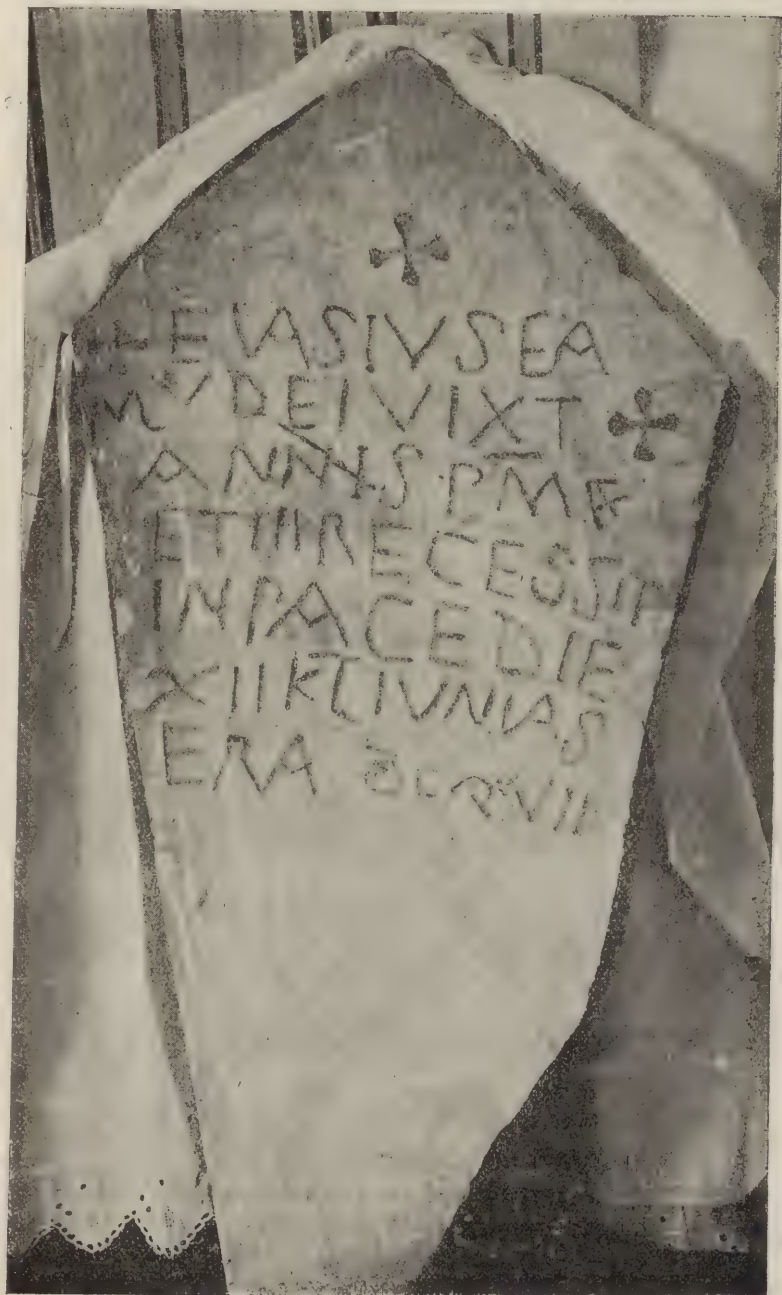 EVASIVSFA
DEIVIXT
ANNIS PM
ETIIIRECESSIT
INPACEDIE
XIIKLIVNIAS
ERA